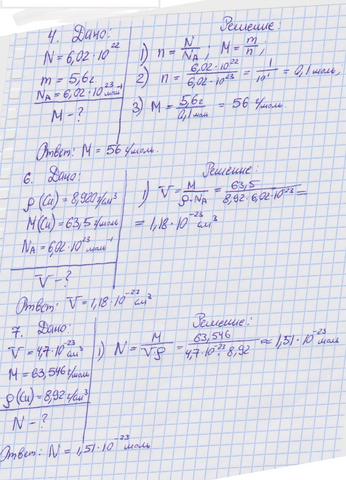 4. Дано:
N = 6,02 · 10²²
m = 5,6г
N_A = 6,02 · 10²³ моль⁻¹
M - ?
Решение:
1) n = N/N_A, M = m/n,
2) n = 6,02 · 10²²/6,02 · 10²³ = 1/10¹ = 0,1 моль,
3) M = 5,6г/0,1 моль = 56 г/моль.
Ответ: M = 56 г/моль.
6. Дано:
ρ(Cu) = 8,920 г/см³
M(Cu) = 63,5 г/моль
N_A = 6,02 · 10²³ моль⁻¹
V - ?
Решение:
1) V = M/ρ · N_A = 63,5/8,92 · 6,02 · 10²³ =
= 1,18 · 10⁻²³ см³
Ответ: V = 1,18 · 10⁻²³ см³
7. Дано:
V = 4,7 · 10⁻²³ см³
M = 63,546 г/моль
ρ(Cu) = 8,92 г/см³
N - ?
Решение:
1) N = M/V · ρ = 63,546/4,7 · 10⁻²³ · 8,92 ≈ 1,51 · 10⁻²³ моль
Ответ: N = 1,51 · 10⁻²³ моль